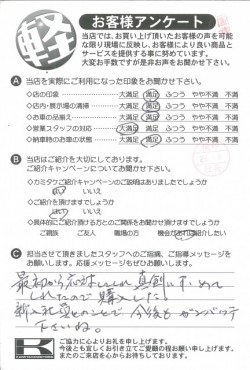 軽
お客様アンケート
当店では、お買い上げ頂いたお客様の声を可能
な限り現場に反映し、お客様により良い商品と
サービスを提供する事に努めています。
大変お手数ですが是非お声をお聞かせ下さい。
A 当店を実際にご利用になった印象をお聞かせ下さい。
◇店の印象 大満足 満足 ふつう やや不満 不満
◇店内・展示場の清掃 大満足 満足 ふつう やや不満 不満
◇お車の品揃え 大満足 満足 ふつう やや不満 不満
◇営業スタッフの対応 大満足 満足 ふつう やや不満 不満
◇納車時のお車の状態 大満足 満足 ふつう やや不満 不満
B 当店はご紹介を大切にしております。
ご紹介キャンペーンについてお聞かせ下さい。
◇カミタケご紹介キャンペーンのご説明はありましたでしょうか
はい いいえ
◇ご紹介を頂けますでしょうか
はい いいえ
◇具体的にご紹介頂ける方とのご関係をお聞かせ頂けますでしょうか
ご親族 ご友人 職場の方 機会があれば紹介したい
C 担当させて頂きましたスタッフへのご指摘、ご指導メッセージを
お願いします。応援メッセージもぜひお願いします。
最初から応対してくれ 真剣にすすめて
くれたので購入した!
新入社員とのことで 今後もガンバッテ
下さいね。
K
ご協力に心よりお礼を申し上げます。
今後とも宜しくお引き立てご愛顧の程お願い申し上げます。
またのご来店を心からお待ちしております。